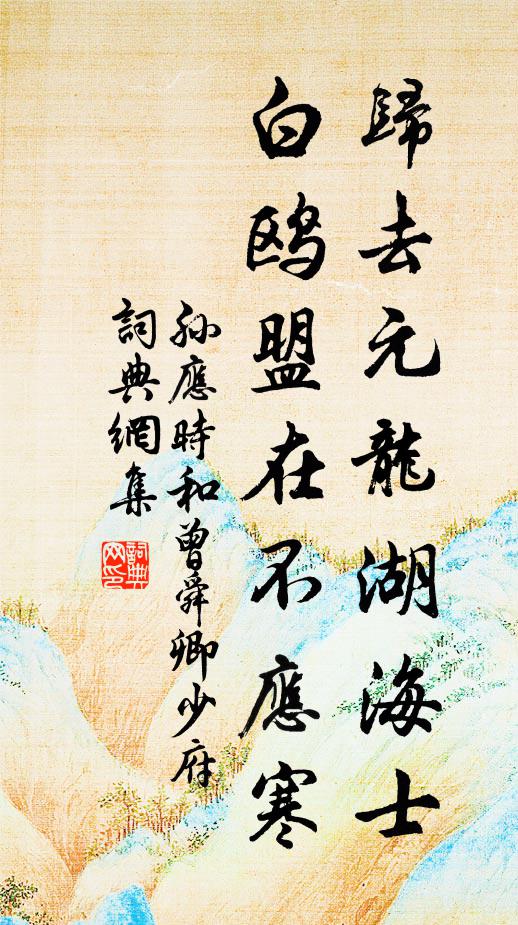 歸去元龍湖海士
白鷗盟在不應寒
孫應時和曾舜卿少府
詞典網集
詞典
网印